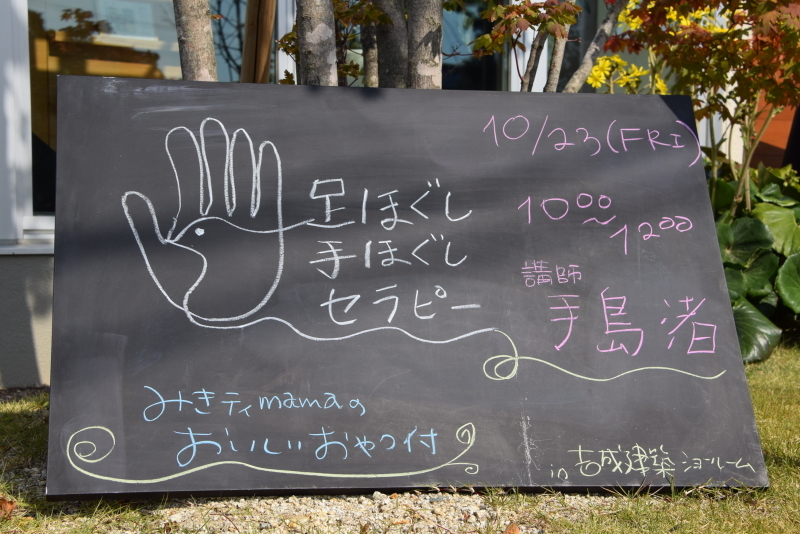 足ほぐし
手ほぐし
セラピー
10/23(FRI)
10:00
~
12:00
講師
手島 渚
みきティmamaの
おいしいおやつ付
in 吉成建築ショールーム